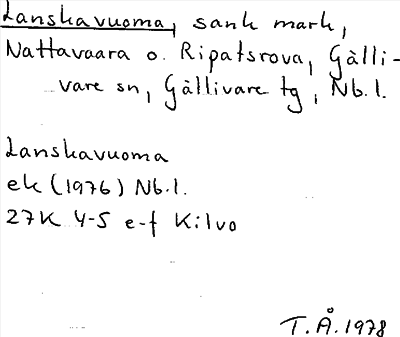 Lanskavuoma, sank mark,
Nattavaara o. Ripatsrova, Gälli-
vare sn, Gällivare tg, Nb.l.
Lanskavuoma
ek (1976) Nb.l.
27K 4-5 e-f Kilvo
T.Å. 1978